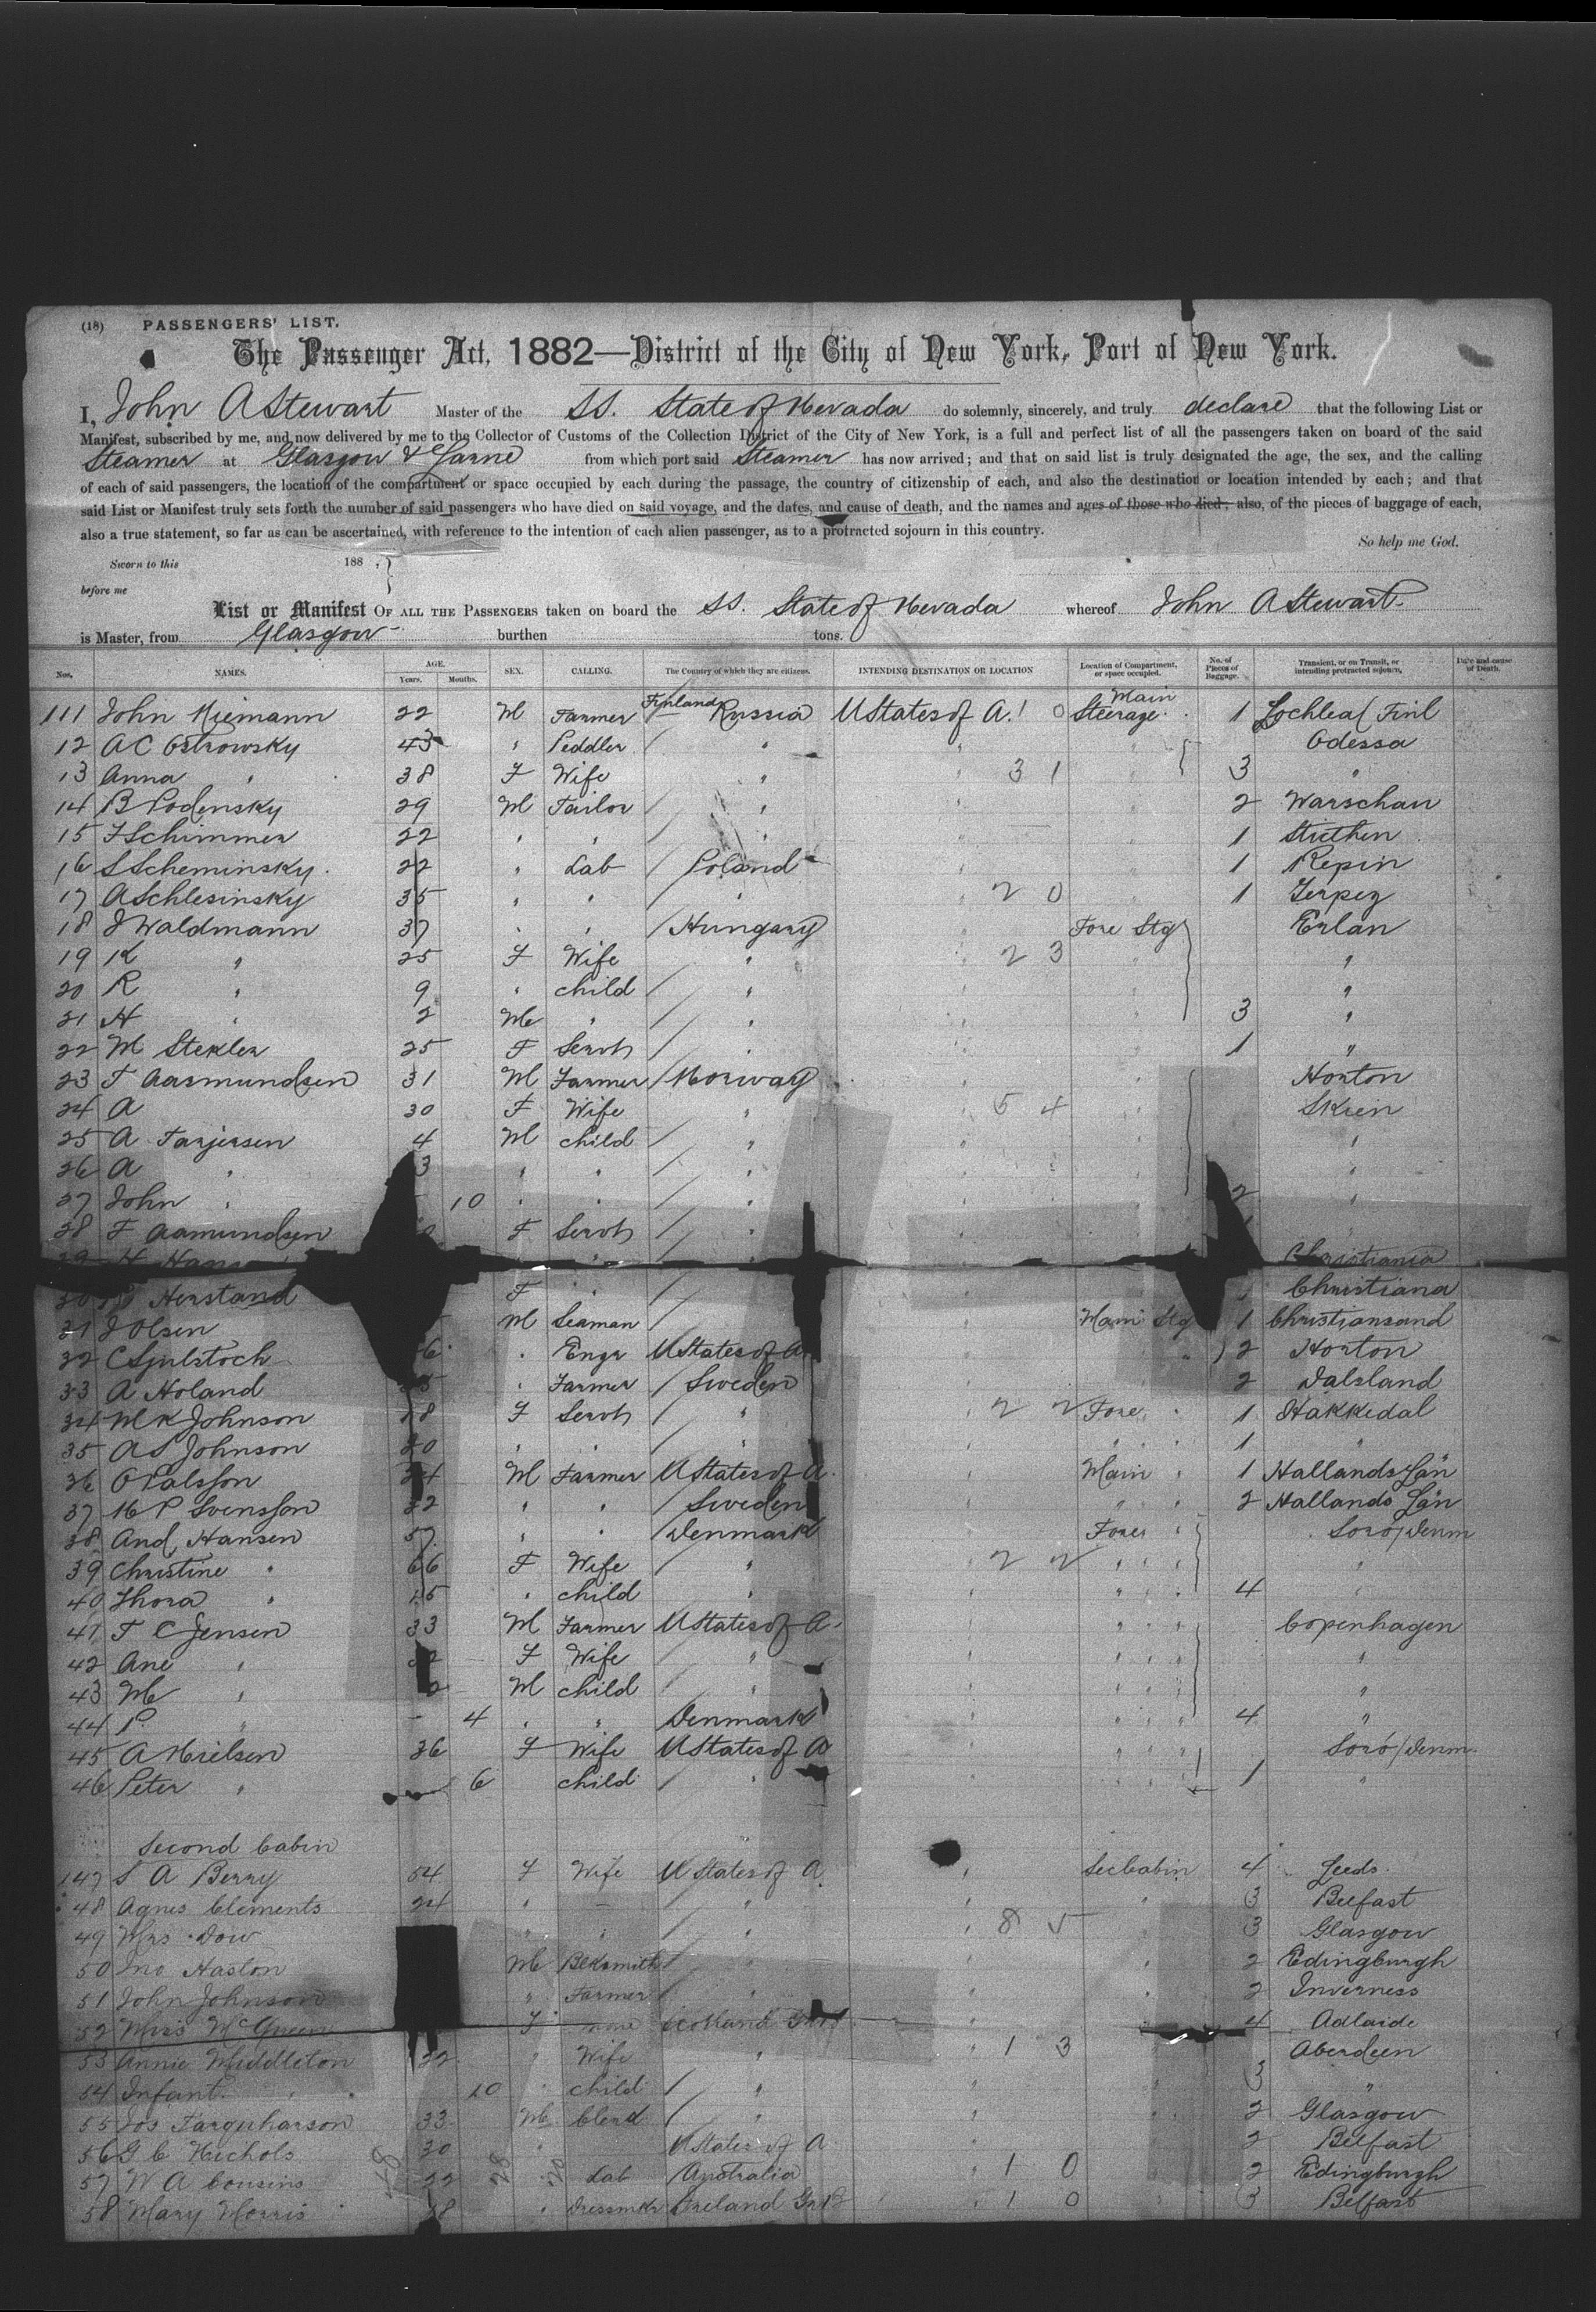 (18) PASSENGERS' LIST.
The Passenger Act, 1882—District of the City of New York, Port of New York.
I, John A Stewart Master of the SS. State of Nevada do solemnly, sincerely, and truly declare that the following List or
Manifest, subscribed by me, and now delivered by me to the Collector of Customs of the Collection District of the City of New York, is a full and perfect list of all the passengers taken on board of the said
Steamer at Glasgow & Larne from which port said Steamer has now arrived; and that on said list is truly designated the age, the sex, and the calling
of each of said passengers, the location of the compartment or space occupied by each during the passage, the country of citizenship of each, and also the destination or location intended by each; and that
said List or Manifest truly sets forth the number of said passengers who have died on said voyage, and the dates, and cause of death, and the names and ages of those who died; also, of the pieces of baggage of each,
also a true statement, so far as can be ascertained, with reference to the intention of each alien passenger, as to a protracted sojourn in this country.
So help me God.
Sworn to this 188 , }
before me
List or Manifest OF ALL THE PASSENGERS taken on board the SS. State of Nevada whereof John A Stewart
is Master, from Glasgow burthen tons.
Nos. NAMES. AGE. Years. Months. SEX. CALLING. The Country of which they are citizens. INTENDING DESTINATION OR LOCATION Location of Compartment, or space occupied. No. of Pieces of Baggage. Transient, or on Transit, or intending protracted sojourn. Date and cause of Death.
111 John Niemann 22 M Farmer Finland Russia U States of A. 1 0 Main Steerage 1 Finl
12 A C Ostrowsky 43 " Peddler / " " Odessa
13 Anna " 38 F Wife " " 3 1 3 "
14 B Podensky 29 M Tailor / " " 2 Warschau
15 F Schimmer 22 " " / " " 1
16 S Scheminsky 22 " Lab / Poland " 1 Repin
17 A Schlesinsky 35 " " / " 2 0 1
18 J Waldmann 37 " " / Hungary " Fore Stg Erlan
19 K " 25 F Wife " " 2 3 "
20 R " 9 " child / " " "
21 H " 2 M " / " " 3 "
22 M Stekler 25 F Servt / " " 1 "
23 T Aasmundsen 31 M Farmer / Norway " Horton
24 A 30 F Wife " " 5 4 Skien
25 A Tarjersen 4 M child / " " "
26 A " 3 " " / " "
27 John " 10 " " / " 2 "
28 F Aamundsen F Servt / "
29 H Christiania
30 Herstand F " / Christiana
31 J Olsen M Seaman / Main Stg 1 Christiansand
32 C " Engr U States of A 2 Horton
33 A Holand " Farmer / Sweden 2 Dalsland
34 M K Johnson 28 F Servt / " " 2 2 Fore " 1 Hakkedal
35 A S Johnson 20 " " / " " 1 "
36 O Palsson 24 M Farmer U States of A. Main " 1 Hallands Län
37 N P Svensson 22 " " / Sweden " 2 Hallands Län
38 And Hansen 57 " " / Denmark Fore " Soro/Denm
39 Christine " 66 F Wife " " 2 2 " "
40 Thora " 15 " child " " 4 "
41 T C Jensen 33 M Farmer U States of A. " Copenhagen
42 Ane " F Wife / " " "
43 M " 2 M child / " " "
44 P. " 4 " " Denmark " 4 "
45 A Nielsen 36 F Wife U States of A " Soro/Denm.
46 Peter " 6 child / " " 1 "
Second Cabin
147 S A Berry 54 F Wife U States of A " Sec Cabin 4 Leeds
48 Agnes Clements 24 " — / " " 3 Belfast
49 Mrs Dow " " / " " 8 5 3 Glasgow
50 Jno Haston M Blksmith / " " 2 Edingburgh
51 John Johnson " Farmer / " " 2 Inverness
52 Miss McQueen F none Scotland Gt B 4 Adlaide
53 Annie Middleton 32 " Wife " " 1 3 Aberdeen
54 Infant " 10 " child / " " 3 "
55 Jos Farquharson 33 M Clerk / " " 2 Glasgow
56 G C Nichols 30 " U States of A 2 Belfast
57 W A Cousins 22 Lab Australia " 1 0 2 Edingburgh
58 Mary Morris 28 " Dressmkr Ireland Gt B " 1 0 3 Belfast